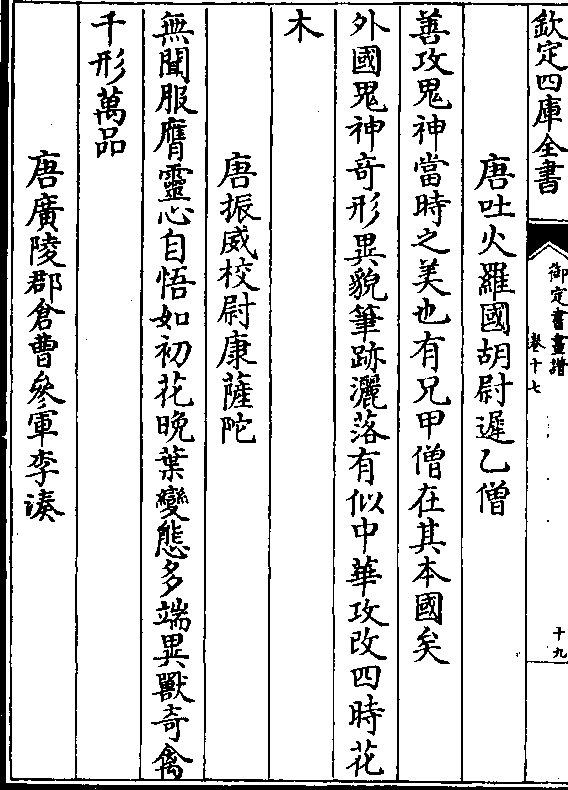 欽定四庫全書
御定書畫譜
卷十七
十九
唐吐火羅國胡尉遲乙僧
善攻鬼神當時之美也有兄甲僧在其本國矣
外國鬼神奇形異貌筆跡灑落有似中華攻改四時花
木
唐振威校尉康薩陀
無聞服膺靈心自悟如初花晚葉變態多端異獸奇禽
千形萬品
唐廣陵郡倉曹參軍李湊